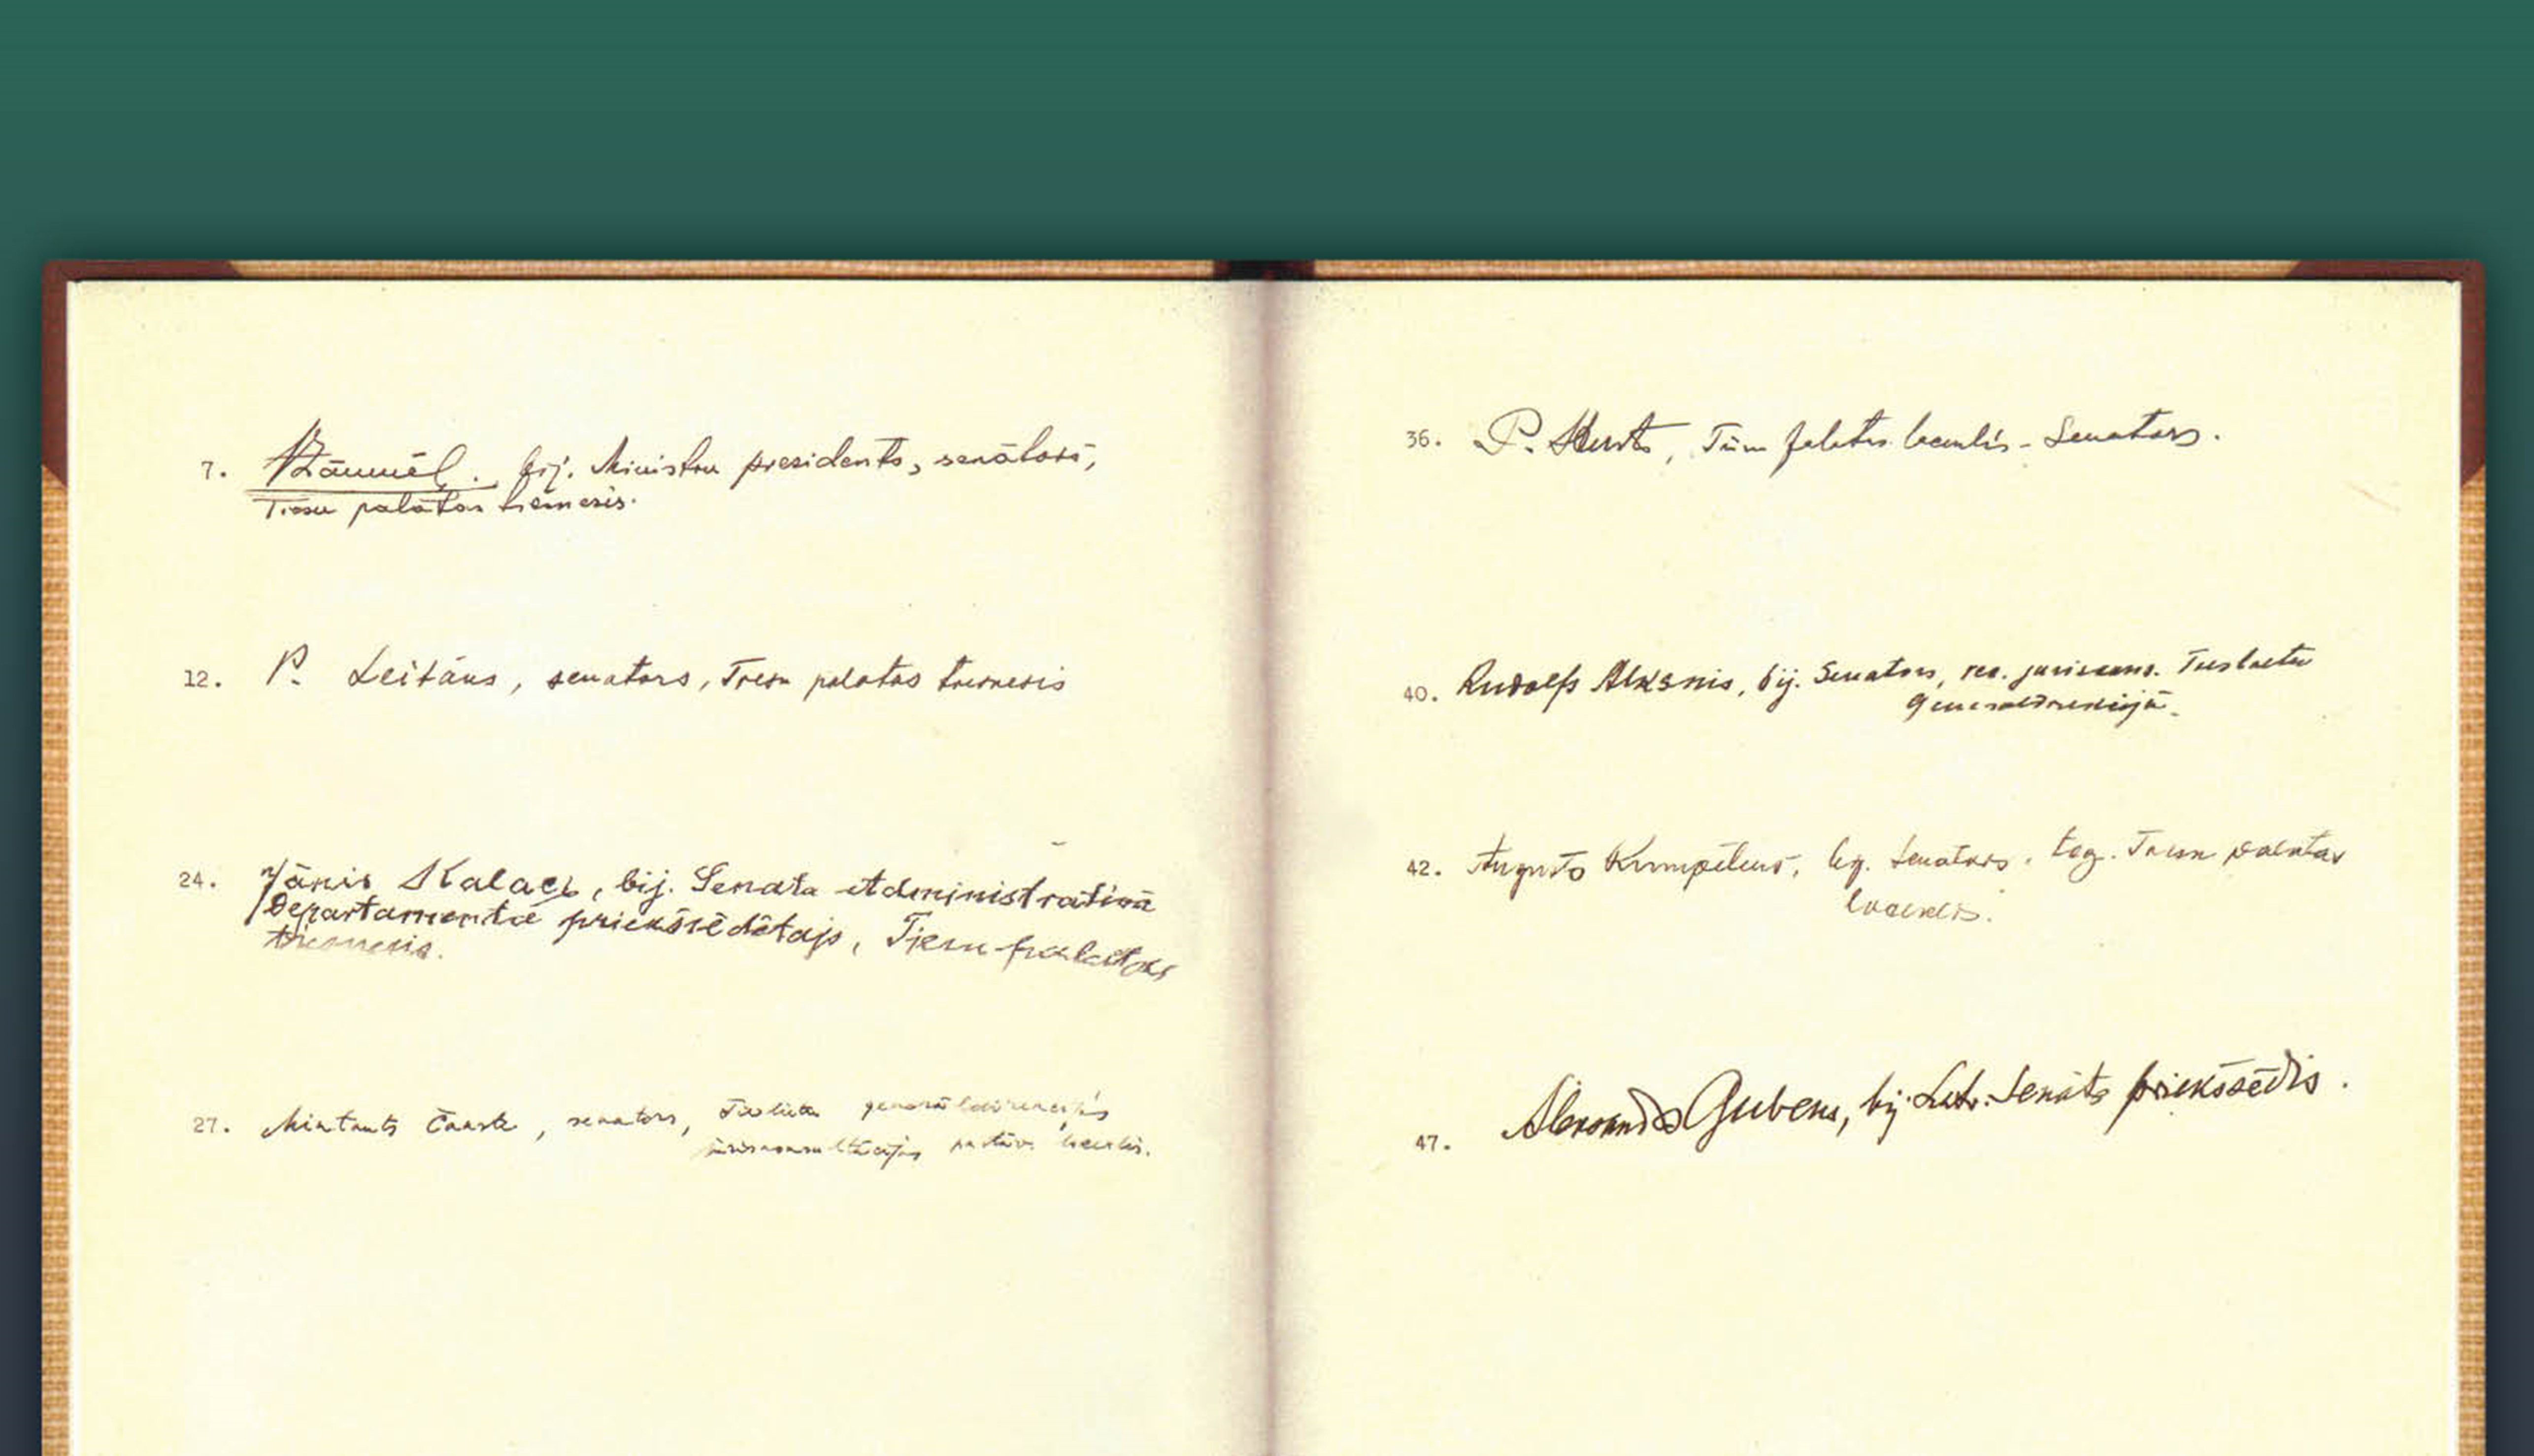 7. bij. Ministru presidents, senātors,
Tiesu palātas tiesnesis.
12. P. Leitāns, senators, Tiesu palatas tiesnesis
24. Jānis Kalacs, bij. Senata Administratīvā
Departamenta priekšsēdētajs, Tiesu palatas
tiesnesis.
27. Mintauts Čakste, senators, Tieslietu generāldirekcijas
juriskonsultācijas vadītājs.
36. P. Sterste, Tiesu palatas loceklis - Senators.
40. Rudolfs Alksnis, bij. Senators, juriskons. Tieslietu
Generaldirekcijā.
42. Augusts Rumpēters, bij. Senators, tag. Tiesu palatas
loceklis.
47. Aleksandrs Gubens, bij. Latv. Senāts priekšsēdis.